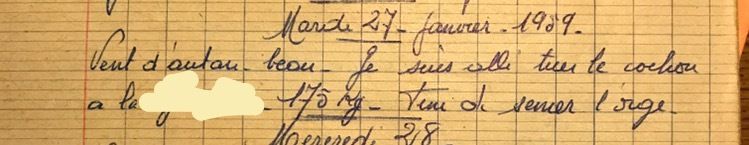 Mardi 27 - janvier - 1959 -
Vent d'autan - beau - Je suis allé tuer le cochon
a la - 175 kg - Fini de semer l'orge -
Mercredi 28 -